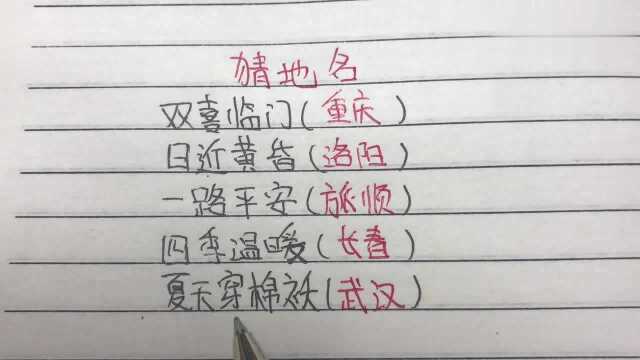 猜地名
双喜临门(重庆)
日近黄昏(洛阳)
一路平安(旅顺)
四季温暖(长春)
夏天穿棉袄(武汉)